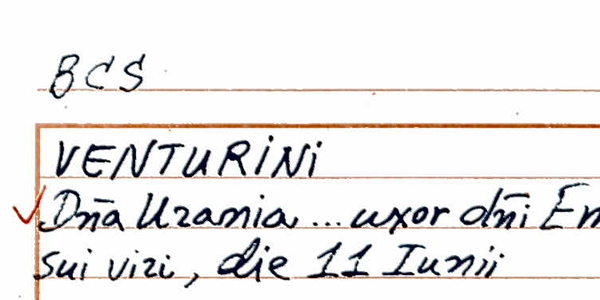 BCS
VENTURINI
Dn̄a Urania ... uxor dn̄i Em
sui viri, die 11 Iunii